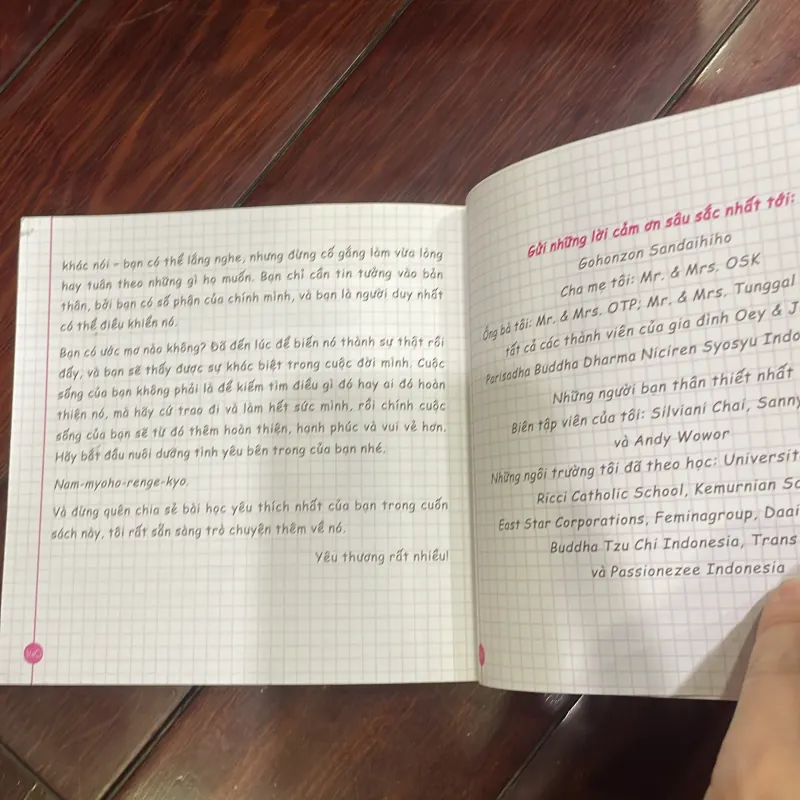 khác nói - bạn có thể lắng nghe, nhưng đừng cố gắng làm vừa lòng
hay tuân theo những gì họ muốn. Bạn chỉ cần tin tưởng vào bản
thân, bởi bạn có số phận của chính mình, và bạn là người duy nhất
có thể điều khiển nó.
Bạn có ước mơ nào không? Đã đến lúc để biến nó thành sự thật rồi
đấy, và bạn sẽ thấy được sự khác biệt trong cuộc đời mình. Cuộc
sống của bạn không phải là để kiếm tìm điều gì đó hay ai đó hoàn
thiện nó, mà hãy cứ trao đi và làm hết sức mình, rồi chính cuộc
sống của bạn sẽ từ đó thêm hoàn thiện, hạnh phúc và vui vẻ hơn.
Hãy bắt đầu nuôi dưỡng tình yêu bên trong của bạn nhé.
Nam-myoho-renge-kyo.
Và đừng quên chia sẻ bài học yêu thích nhất của bạn trong cuốn
sách này, tôi rất sẵn sàng trò chuyện thêm về nó.
Yêu thương rất nhiều!
Gửi những lời cảm ơn sâu sắc nhất tới:
Gohonzon Sandaihiho
Cha mẹ tôi: Mr. & Mrs. OSK
Ông bà tôi: Mr. & Mrs. OTP; Mr. & Mrs. Tunggal
tất cả các thành viên của gia đình Oey & J
Parisadha Buddha Dharma Niciren Syosyu Indo
Những người bạn thân thiết nhất
Biên tập viên của tôi: Silviani Chai, Sanny
và Andy Wowor
Những ngôi trường tôi đã theo học: Universit
Ricci Catholic School, Kemurnian Sc
East Star Corporations, Feminagroup, Daai
Buddha Tzu Chi Indonesia, Trans
và Passionezee Indonesia